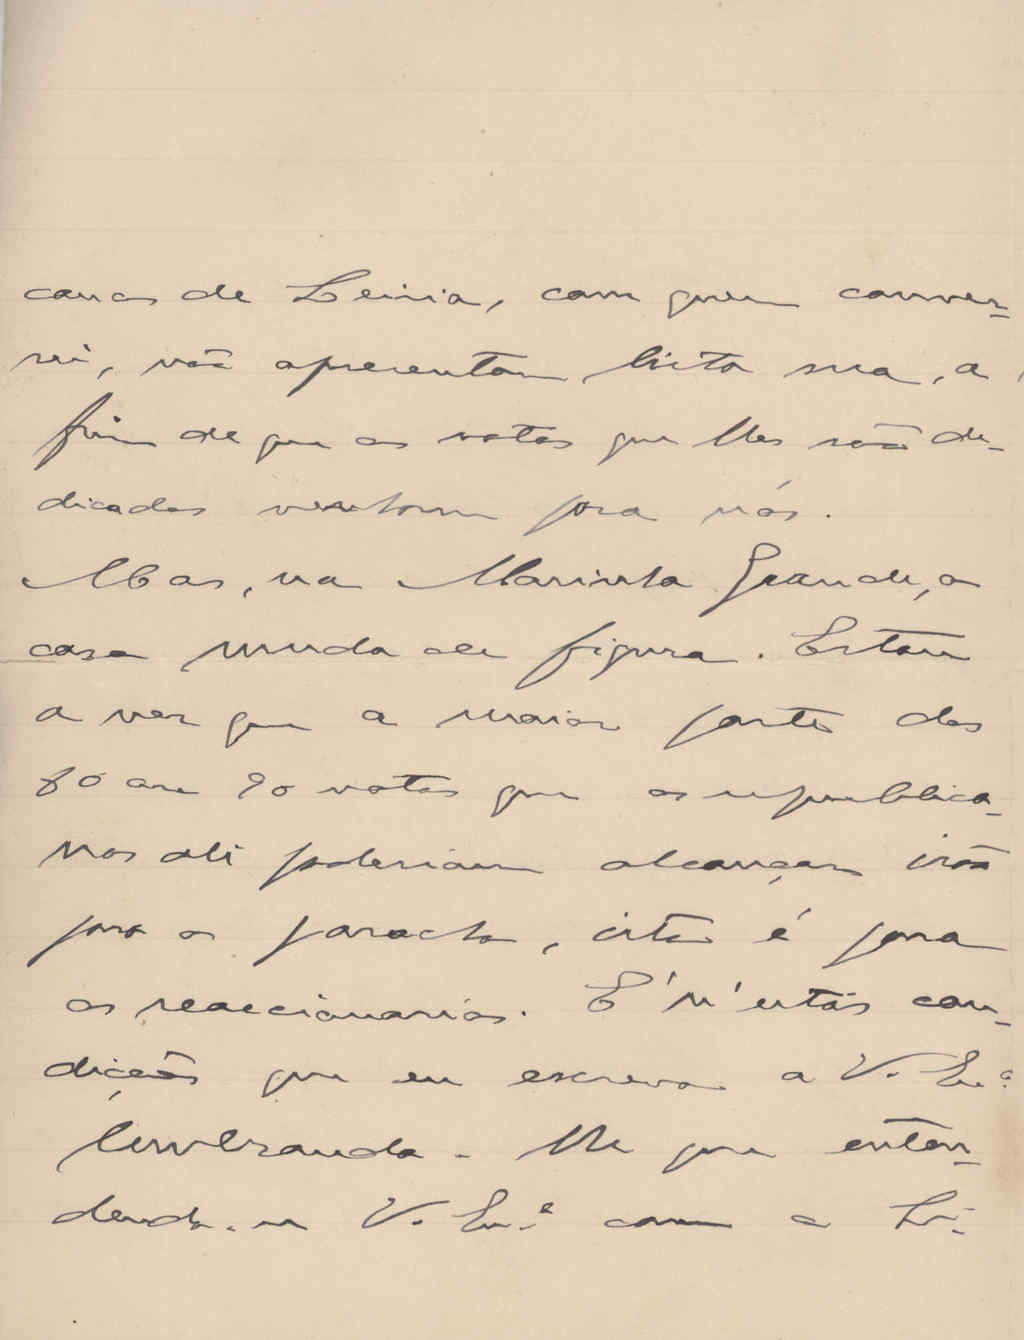 canos de Leiria, com quem conver-
sei, vão apresentar lista sua, a
fim de que os votos que lhes são de-
dicados venham para nós.
Mas, na Marinha Grande, o
caso muda de figura. Estou
a ver que a maior parte dos
80 ou 90 votos que os republica-
nos ali poderiam alcançar irão
para o paracho, isto é para
os reaccionarios. É n'estas con-
dições que eu escrevo a V. Ex.ª
lembrando-lhe que enten-
dendo-se V. Ex.ª com o Li-